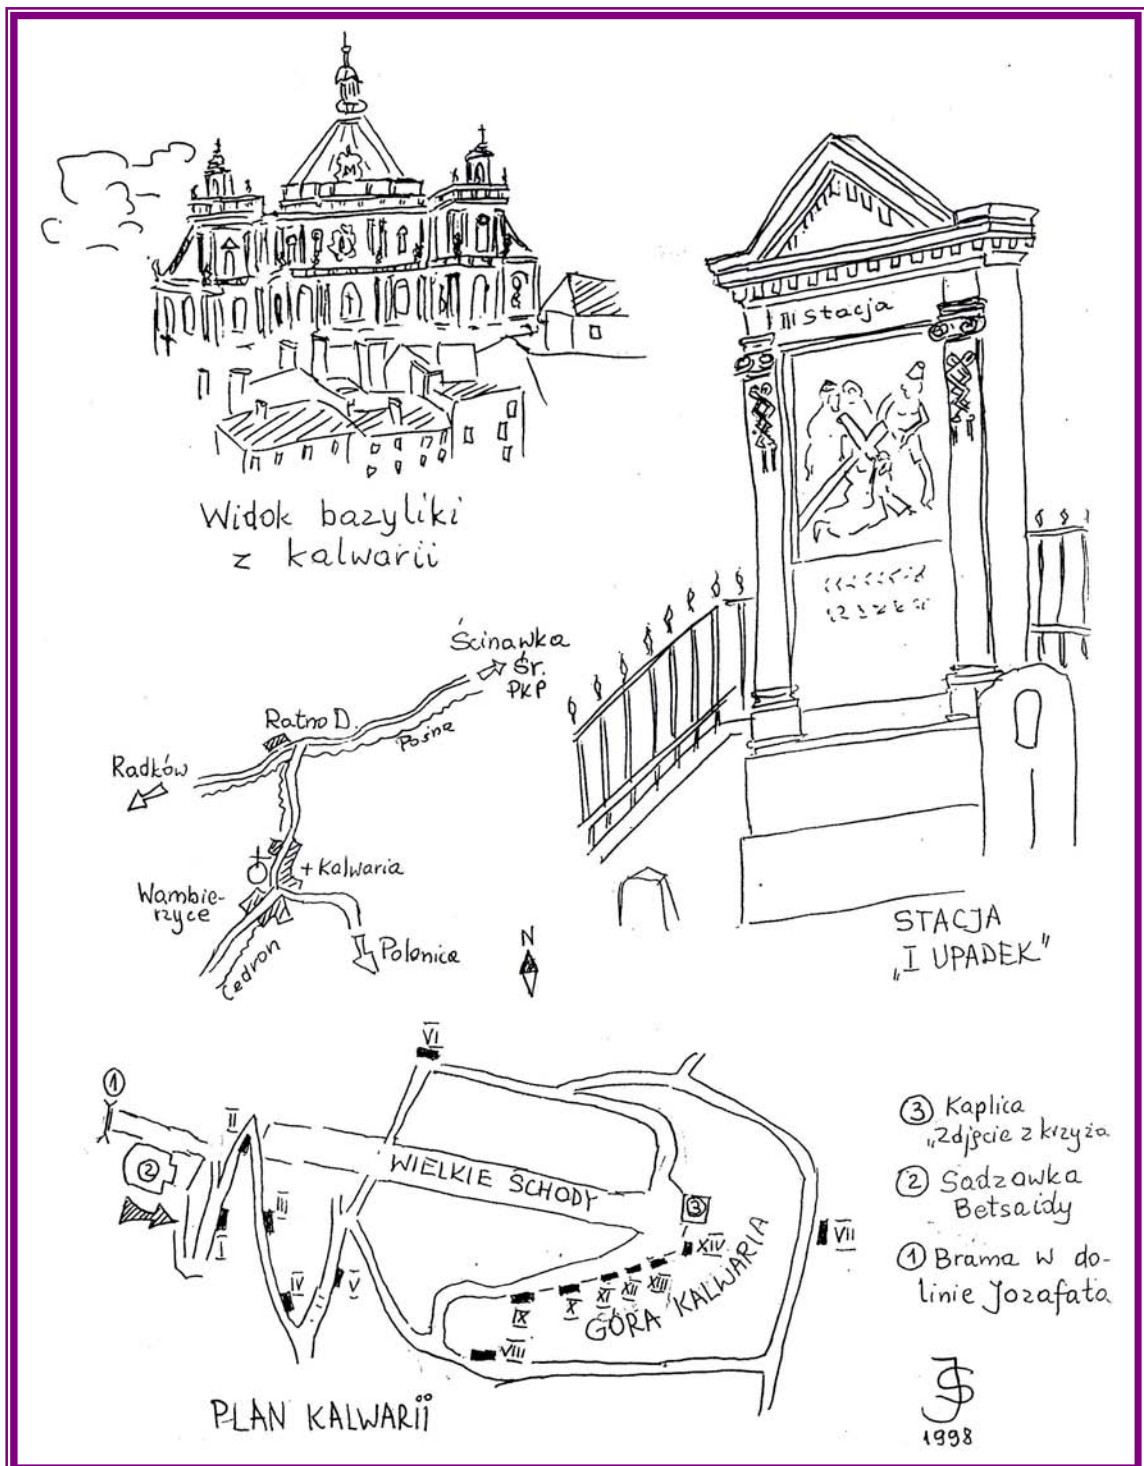 M
Widok bazyliki
z kalwarii
III stacja
Ścinawka
Śr.
PKP
Ratno D.
Pośna
Radków
+ Kalwaria
Wambie-
rzyce
Cedron
Polanica
N
STACJA
„I UPADEK”
VI
1
II
2
WIELKIE SCHODY
3
III
I
IV
V
XIV
VII
XIII
XII
XI
X
IX
VIII
GÓRA KALWARIA
PLAN KALWARII
3 Kaplica
„Zdjęcie z krzyża
2 Sadzawka
Betsaidy
1 Brama w do-
linie Jozafata
JS
1998